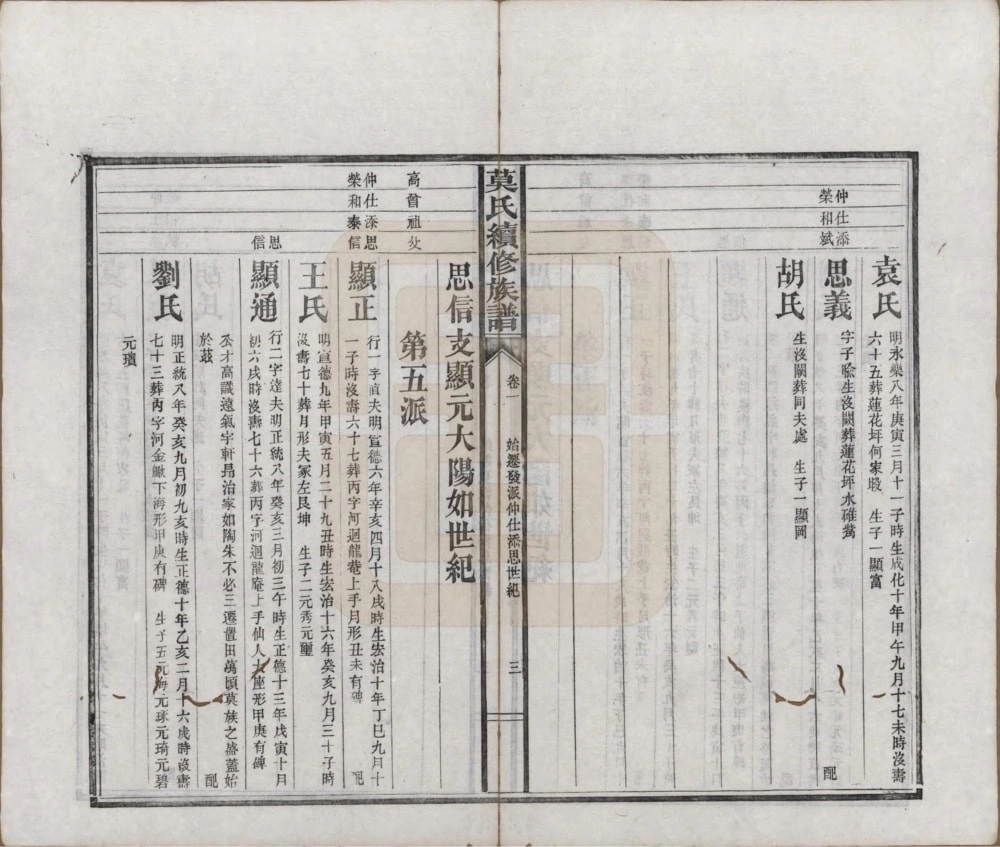 袁氏
明永樂八年庚寅三月十一子時生成化十年甲午九月十七未時沒壽
六十五葬蓮花坪何家塅　生子一顯富
仲仕添
榮和斌
思義
字子瞼生沒闕葬蓮花坪水碓嵩　配
胡氏
生沒闕葬同夫處　生子一顯岡
莫氏續修族譜
卷一
始遷發派仲仕添思世紀
三
思信支顯元大陽如世紀
高曾祖父
第五派
仲仕添思
榮和泰信
顯正
行一字直夫明宣德六年辛亥四月十八戌時生宏治十年丁巳九月十
一子時沒壽六十七葬丙字河迴龍菴上手月形丑未有碑　配
王氏
明宣德九年甲寅五月二十九丑時生宏治十六年癸亥九月三十子時
沒壽七十葬月形夫冢左艮坤　生子二元秀元璽
思
信
顯通
行二字達夫明正統八年癸亥三月初三午時生正德十三年戊寅十月
初六戌時沒壽七十六葬丙字河迴龍庵上手仙人大座形甲庚有碑
公才高識遠氣宇軒昂治家如陶朱不必三遷置田萬頃莫族之盛蓋始
於茲　配
劉氏
明正統八年癸亥九月初九亥時生正德十年乙亥二月十六戌時沒壽
七十三葬丙字河金鰍下海形甲庚有碑　生子五元海元琢元琦元碧
元璸